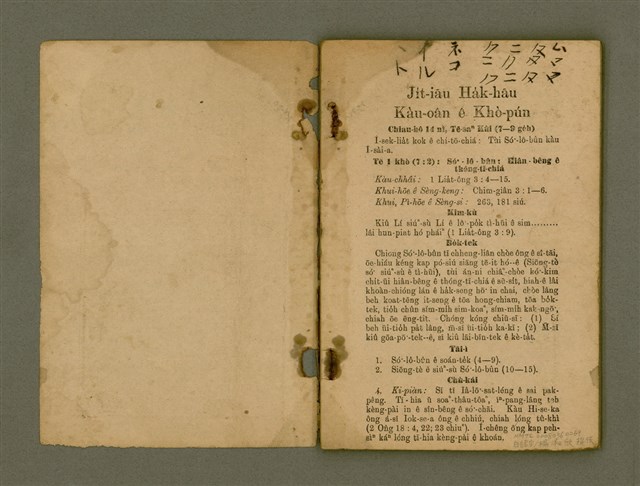 ム タ ニ ク ネ イ ン
マ タ ク ニ コ ル ト
マ タ ニ ク
Ji̍t-iāu Ha̍k-hāu
Kàu-oân ê Khò-pún
Chiau-hô 14 nî, Tē-saⁿ Kùi (7—9 ge̍h)
Í-sek-lia̍t kok ê chí-tō-chiá: Tùi Só͘-lô-bûn kàu
Í-sài-a.
Tē 1 khò (7:2): Só͘-lô-bûn: Hiân-bêng ê
thóng-tī-chiá
Kàu-chhâi: 1 Lia̍t-ông 3:4—15.
Khui-hōe ê Sèng-keng: Chim-giân 3:1—6.
Khui, Pì-hōe ê Sèng-si: 263, 181 siú.
Kim-kù
Kiû Lí siúⁿ-sù Lí ê lô͘-po̍k tì-hūi ê sim.........
lâi hun-piat hó pháiⁿ (1 Lia̍t-ông 3:9).
Bo̍k-tek
Chiong Só͘-lô-bûn tī chheng-liân chòe ông ê sî-tāi,
ōe-hiáu kéng kap pó-siú siāng tē-it hó--ê (Siōng-tè
só͘ siúⁿ-sù ê tì-hūi), tùi án-ni chiâⁿ-chòe kó͘-kim
chi̍t-ūi hiân-bêng ê thóng-tī-chiá ê sū-si̍t, biah-ê lâi
khoàn-chióng lán ê ha̍k-seng hō͘ in chai, chòe lâng
beh koat-tēng it-seng ê tōa hong-chiam, tōa bo̍k-
tek, tio̍h chûn sím-mi̍h sim-koaⁿ, sím-mi̍h kak-ngō͘,
chiah ōe êng-tit. Chóng kóng chiū-sī: (1) Sī
beh ūi-tio̍h pa̍t lâng, m̄-sī ūi-tio̍h ka-kī: (2) M̄-sī
kiû gōa-pō͘-tek--ê, sī kiû lāi-bīn-tek ê kè-ta̍t.
Tāi-ì
1. Só͘-lô-bûn ê soán-te̍k (4—9).
2. Siōng-tè ê siúⁿ-sù Só͘-lô-bûn (10—15).
Chù-kái
4. Ki-piàn: Sī tī Iâ-lō͘-sat-léng ê sai pak-
pêng. Tī-hia ū soaⁿ-thâu-tōaⁿ, îⁿ-pang-lâng teh
kèng-pài in ê sîn-bêng ê só͘-chāi. Kàu Hi-se-ka
ông á-sī Iok-se-a ông ê chhiú, chiah lóng tû-khì
(2 Ông 18:4, 22; 23 chiuⁿ). I-chêng ông kap peh-
sìⁿ káⁿ lóng tī-hia kèng-pài ê khoán.